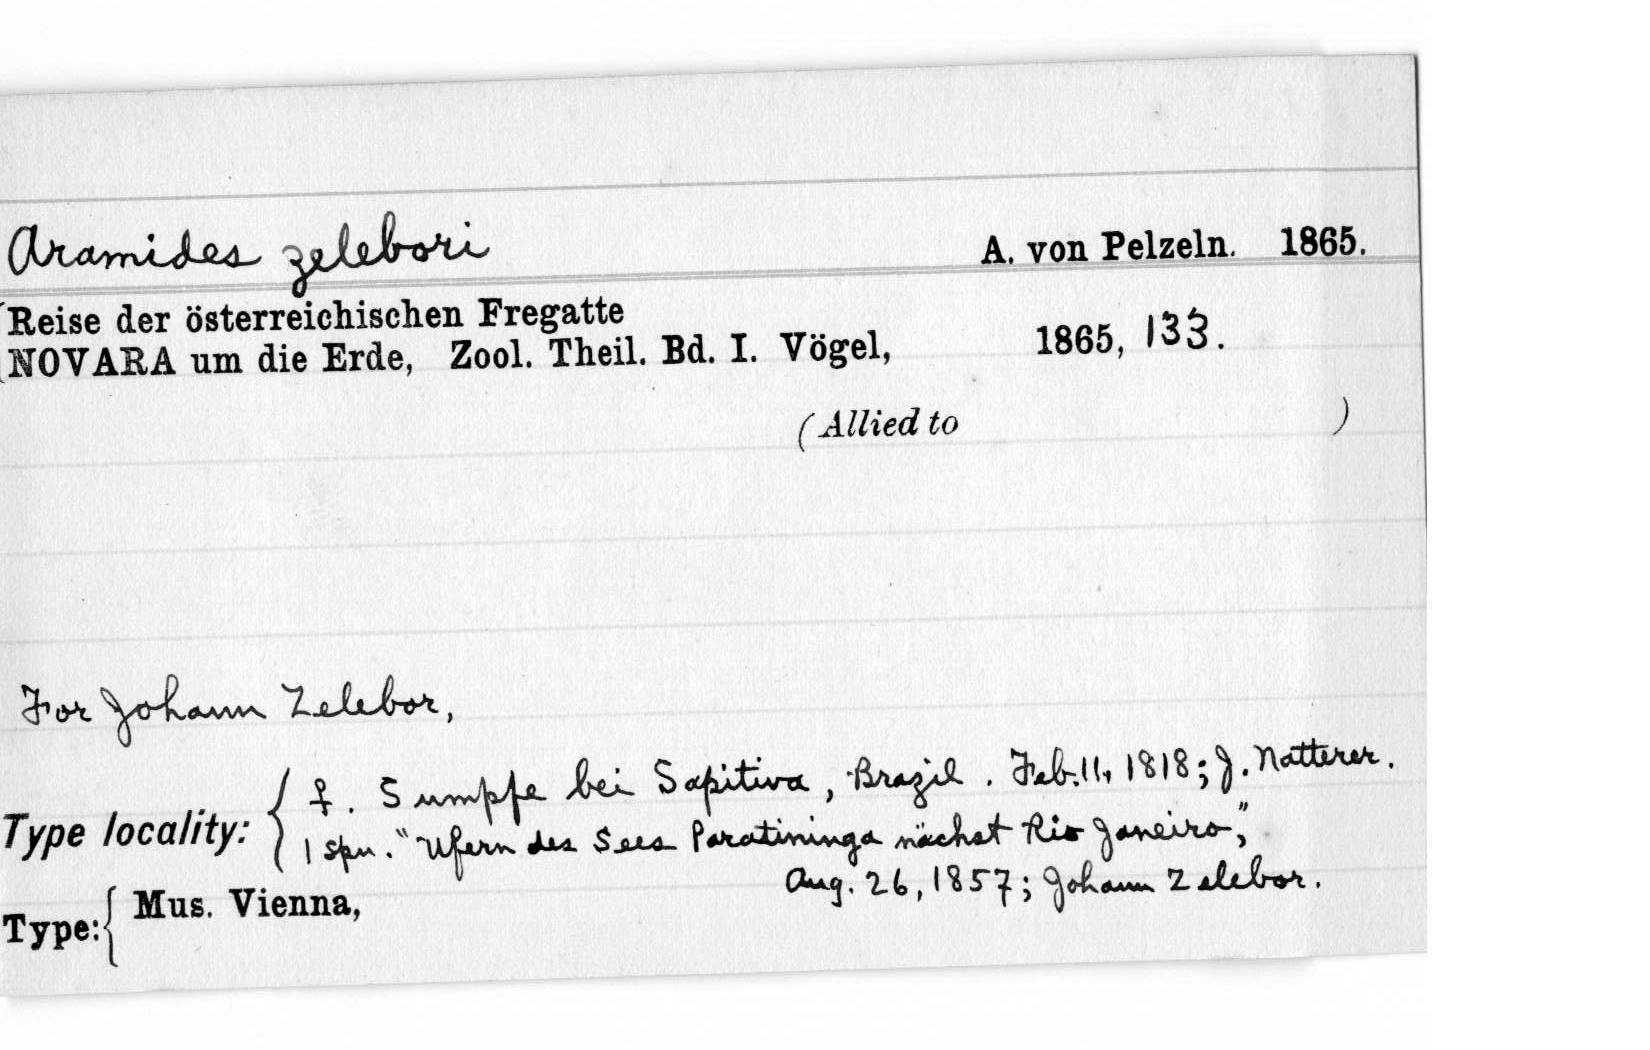 Aramides zelebori A. von Pelzeln. 1865.
Reise der österreichischen Fregatte
NOVARA um die Erde, Zool. Theil. Bd. I. Vögel, 1865, 133.
(Allied to )
For Johann Zelebor,
Type locality: { ♀. Sumpfe bei Sapitiva, Brazil. Feb. 11, 1818; J. Natterer.
1 spn. "Ufern des Sees Paratininga nächst Rio Janeiro,"
Aug. 26, 1857; Johann Zelebor.
Type: { Mus. Vienna,